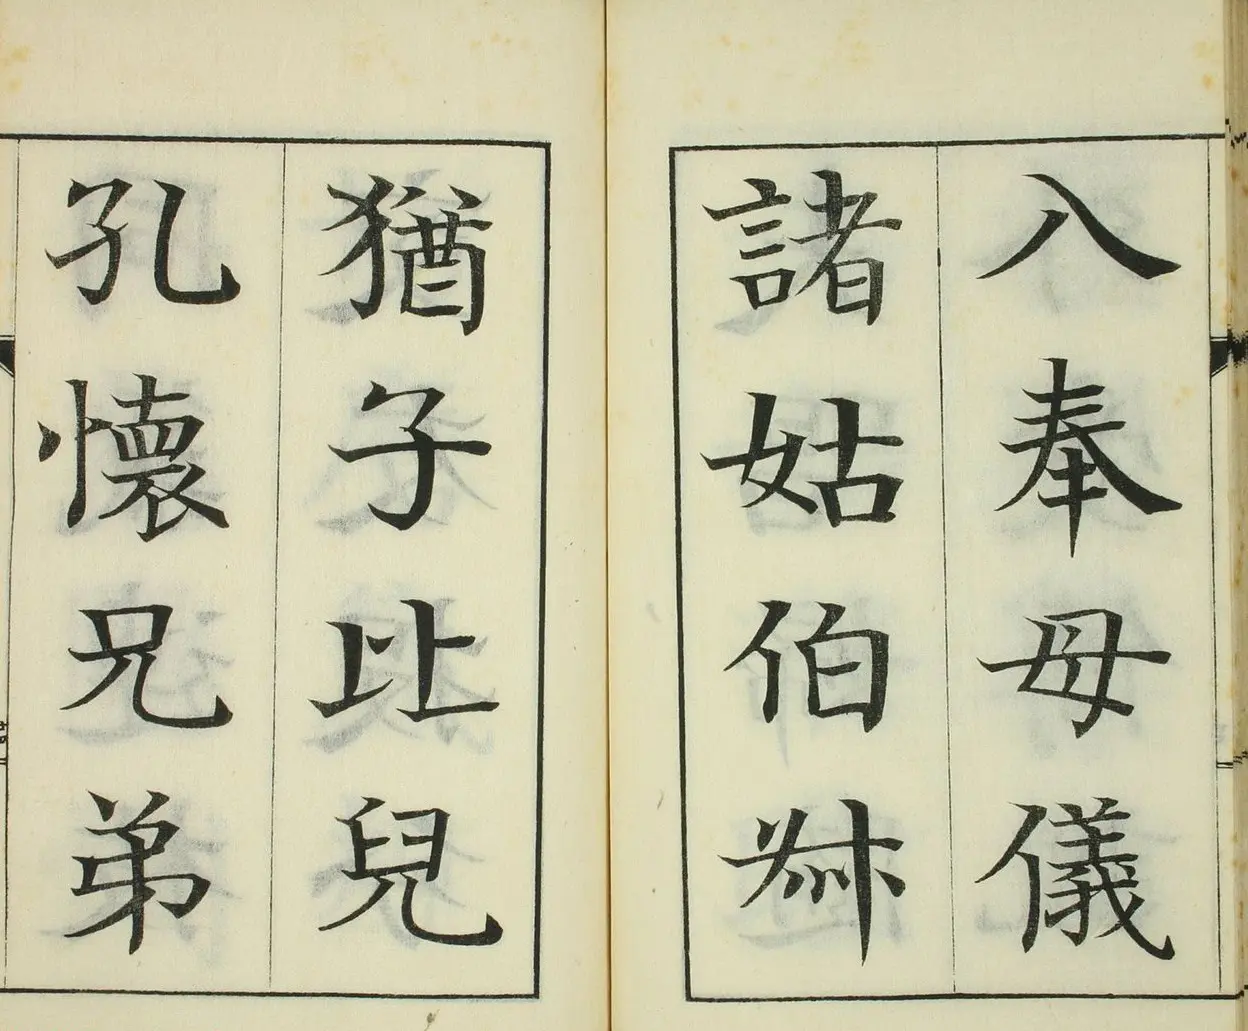 入奉母儀
諸姑伯叔
猶子比兒
孔懷兄弟